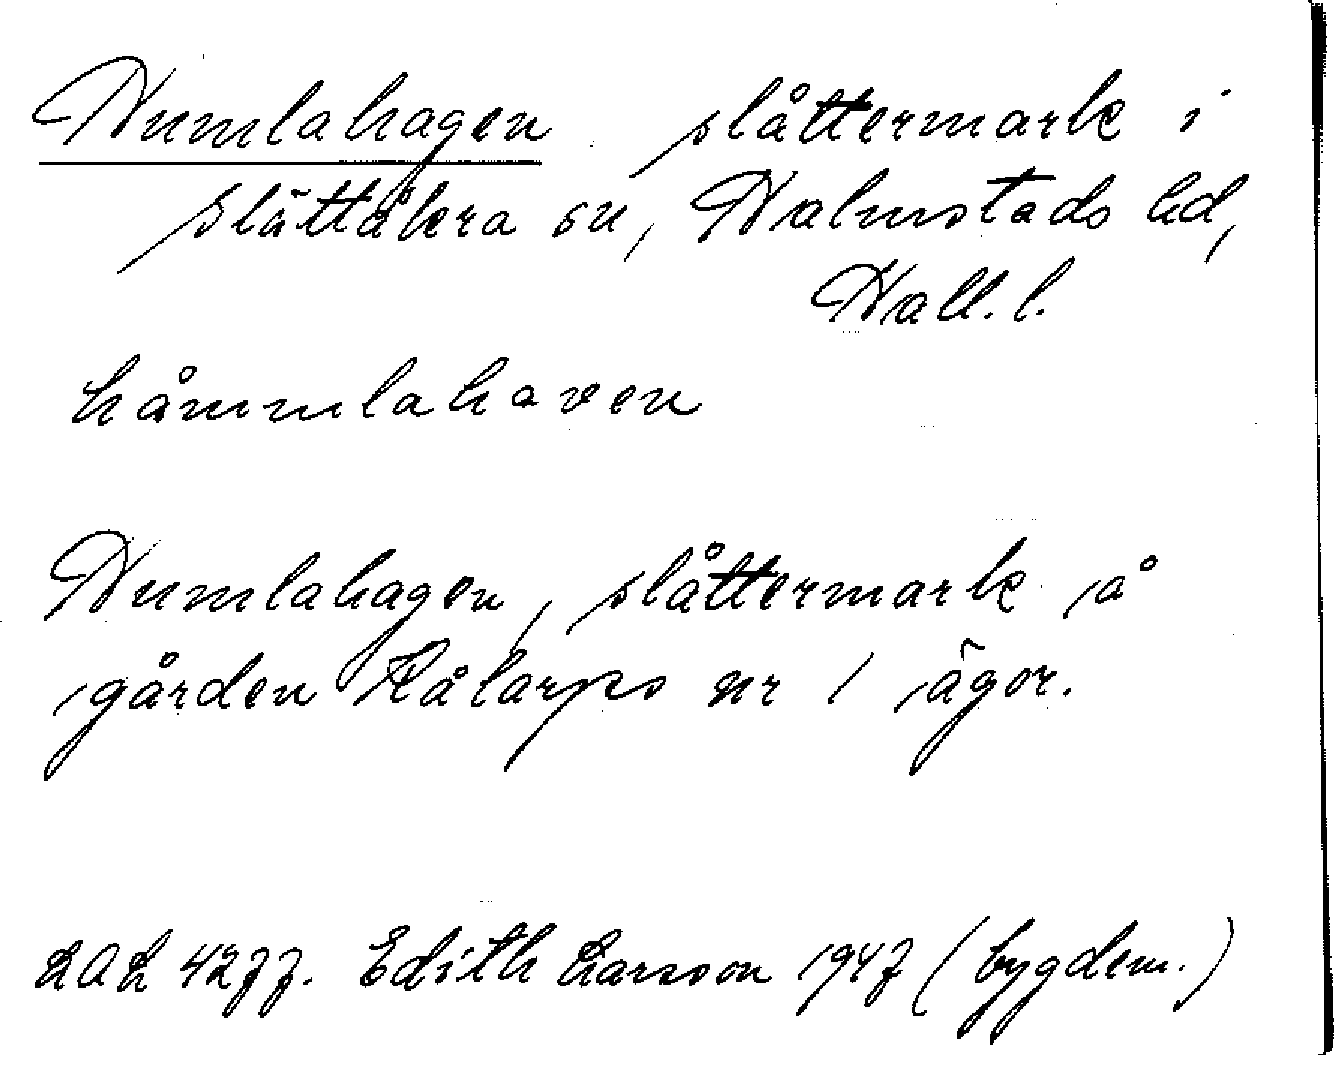 Humlahagen slåttermark i
Slättåkra sn, Halmstads hd,
Hall. l.
håmmlahaven
Humlahagen, slåttermark å
gården Kålarps nr 1 ägor.
LAL 4277. Edith Larsson 1947 (bygdem.)